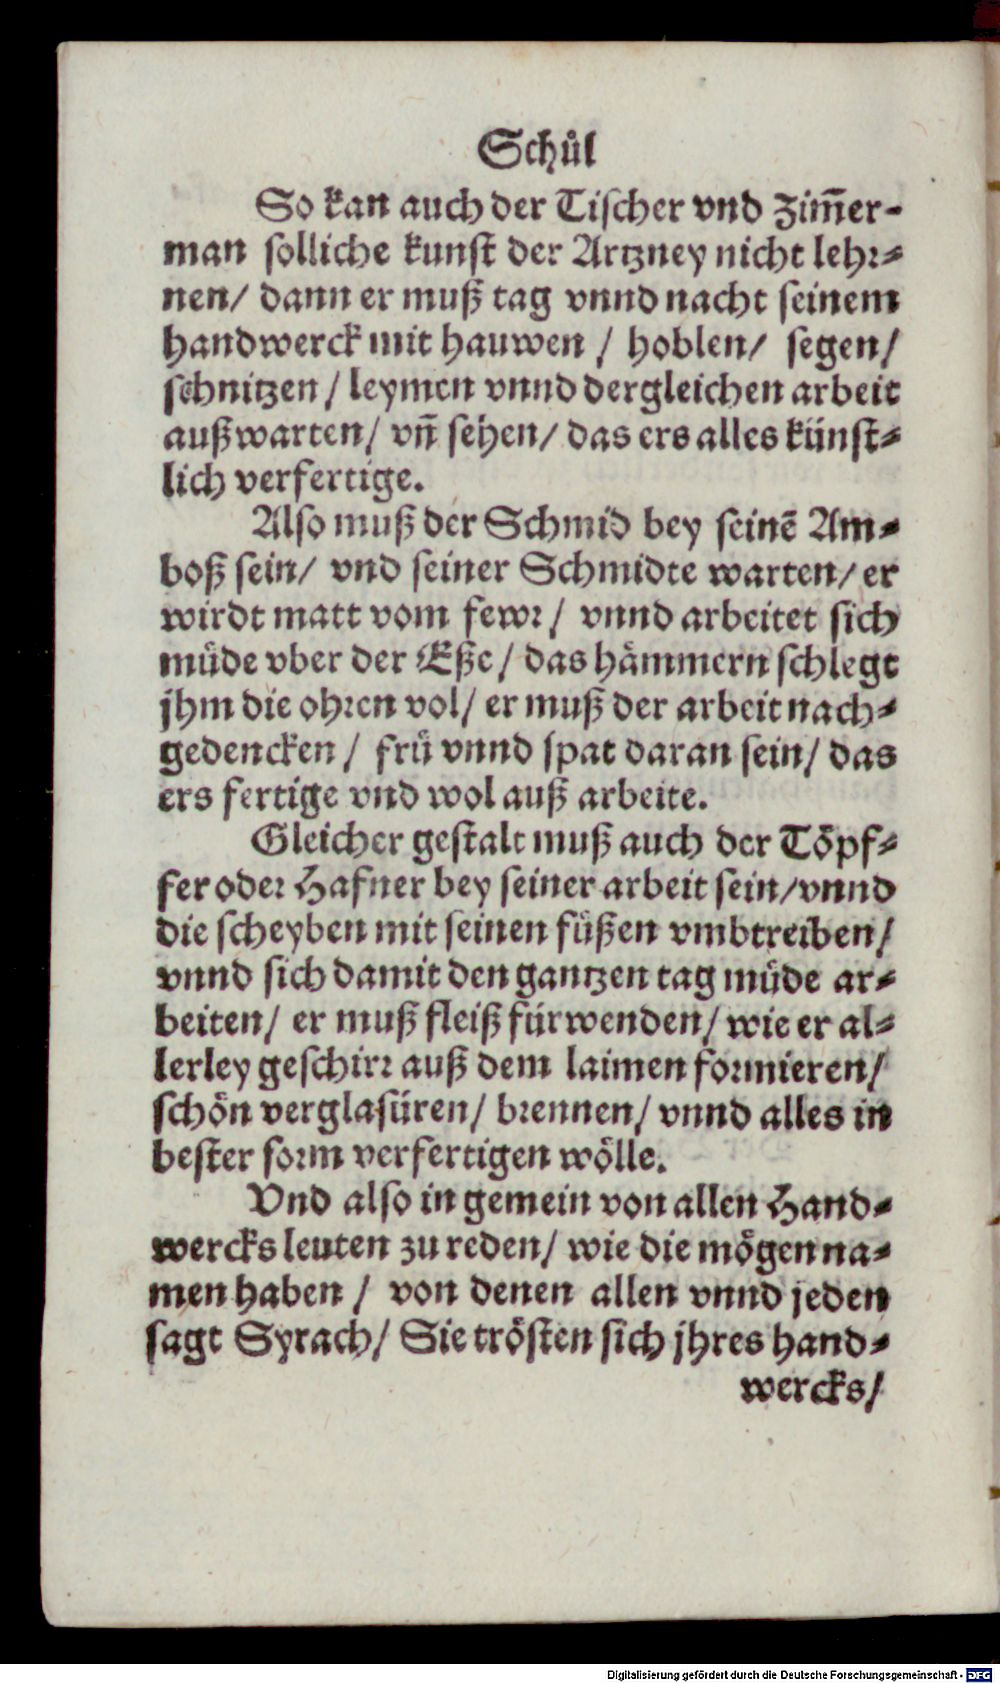 Schůl
So kan auch der Tischer vnd Zim̄er-
man solliche kunst der Artzney nicht lehr-
nen/ dann er muß tag vnnd nacht seinem
handwerck mit hauwen / hoblen/ segen/
schnitzen / leymen vnnd dergleichen arbeit
außwarten/ vn̄ sehen/ das ers alles künst-
lich verfertige.
Also muß der Schmid bey seinē Am-
boß sein/ vnd seiner Schmidte warten/ er
wirdt matt vom fewr / vnnd arbeitet sich
müde vber der Eße / das hämmern schlegt
jhm die ohren vol/ er muß der arbeit nach-
gedencken / frü vnnd spat daran sein/ das
ers fertige vnd wol auß arbeite.
Gleicher gestalt muß auch der Töpf-
fer oder Hafner bey seiner arbeit sein/vnnd
die scheyben mit seinen füßen vmbtreiben/
vnnd sich damit den gantzen tag müde ar-
beiten/ er muß fleiß fürwenden/ wie er al-
lerley geschirr auß dem laimen formieren/
schön verglasüren/ brennen/ vnnd alles in
bester form verfertigen wölle.
Vnd also in gemein von allen Hand-
wercks leuten zu reden/ wie die mögen na-
men haben / von denen allen vnnd jeden
sagt Syrach/ Sie trösten sich jhres hand-
wercks/
Digitalisierung gefördert durch die Deutsche Forschungsgemeinschaft - DFG